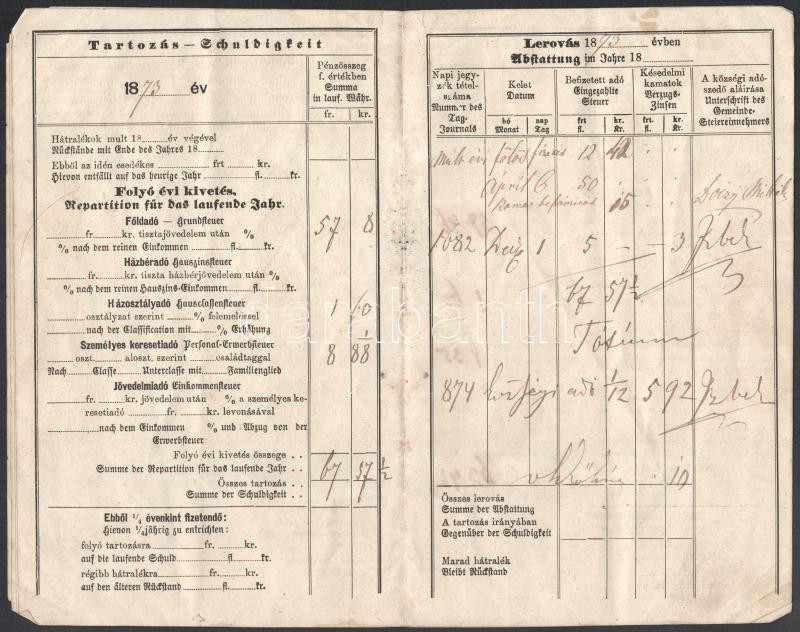 Tartozás — Schuldigkeit
1873 év
Pénzösszeg
f. értékben
Summa
in lauf. Währ.
fr. kr.
Hátralékok mult 18 év végével
Rückstände mit Ende des Jahres 18
Ebből az idén esedékes frt kr.
Hievon entfällt auf das heurige Jahr fl. kr.
Folyó évi kivetés.
Repartition für das laufende Jahr.
Földadó — Grundsteuer 57 8
fr. kr. tisztajövedelem után %
% nach dem reinen Einkommen fl. kr.
Házbéradó Hauszinssteuer
fr. kr. tiszta házbérjövedelem után %
% nach dem reinen Hauszins-Einkommen fl. kr.
Házosztályadó Hausclassensteuer 1 60
osztályzat szerint % felemeléssel
nach der Classification mit % Erhöhung
Személyes keresetiadó Personal-Erwerbsteuer 8 88 1/2
oszt. aloszt. szerint családtaggal
Nach Classe Unterclasse mit Familienglied
Jövedelmiadó Einkommensteuer
fr. kr. jövedelem után % a személyes ke-
resetiadó fr. kr. levonásával
nach dem Einkommen % und Abzug von der
Erwerbsteuer
Folyó évi kivetés összege . .
Summe der Repartition für das laufende Jahr . . 67 57 1/2
Összes tartozás . .
Summe der Schuldigkeit . .
Ebből 1/4 évenkint fizetendő:
Hievon 1/4jährig zu entrichten:
folyó tartozásra fr. kr.
auf die laufende Schuld fl. kr.
régibb hátralékra fr. kr.
auf den älteren Rückstand fl. kr.
Lerovás 1873 évben
Abstattung im Jahre 18
Napi jegy-
zék tétel-
száma
Nummer des
Tag-
Journals
Kelet
Datum
hó Monat
nap Tag
Befizetett adó
Eingezahlte
Steuer
frt fl.
kr. Kr.
Késedelmi
kamatok
Verzugs-
Zinsen
frt fl.
kr. Kr.
A községi adó-
szedő aláirása
Unterschrift des
Gemeinde-
Steiereinnehmers
Mult évi fizetés 12 42
April 6 50
15
1082 1 5 — — 3
67 57 1/2
874 községi adó 1/12 5 92
10
Összes lerovás
Summe der Abstattung
A tartozás irányában
Gegenüber der Schuldigkeit
Marad hátralék
Bleibt Rückstand
darabanth